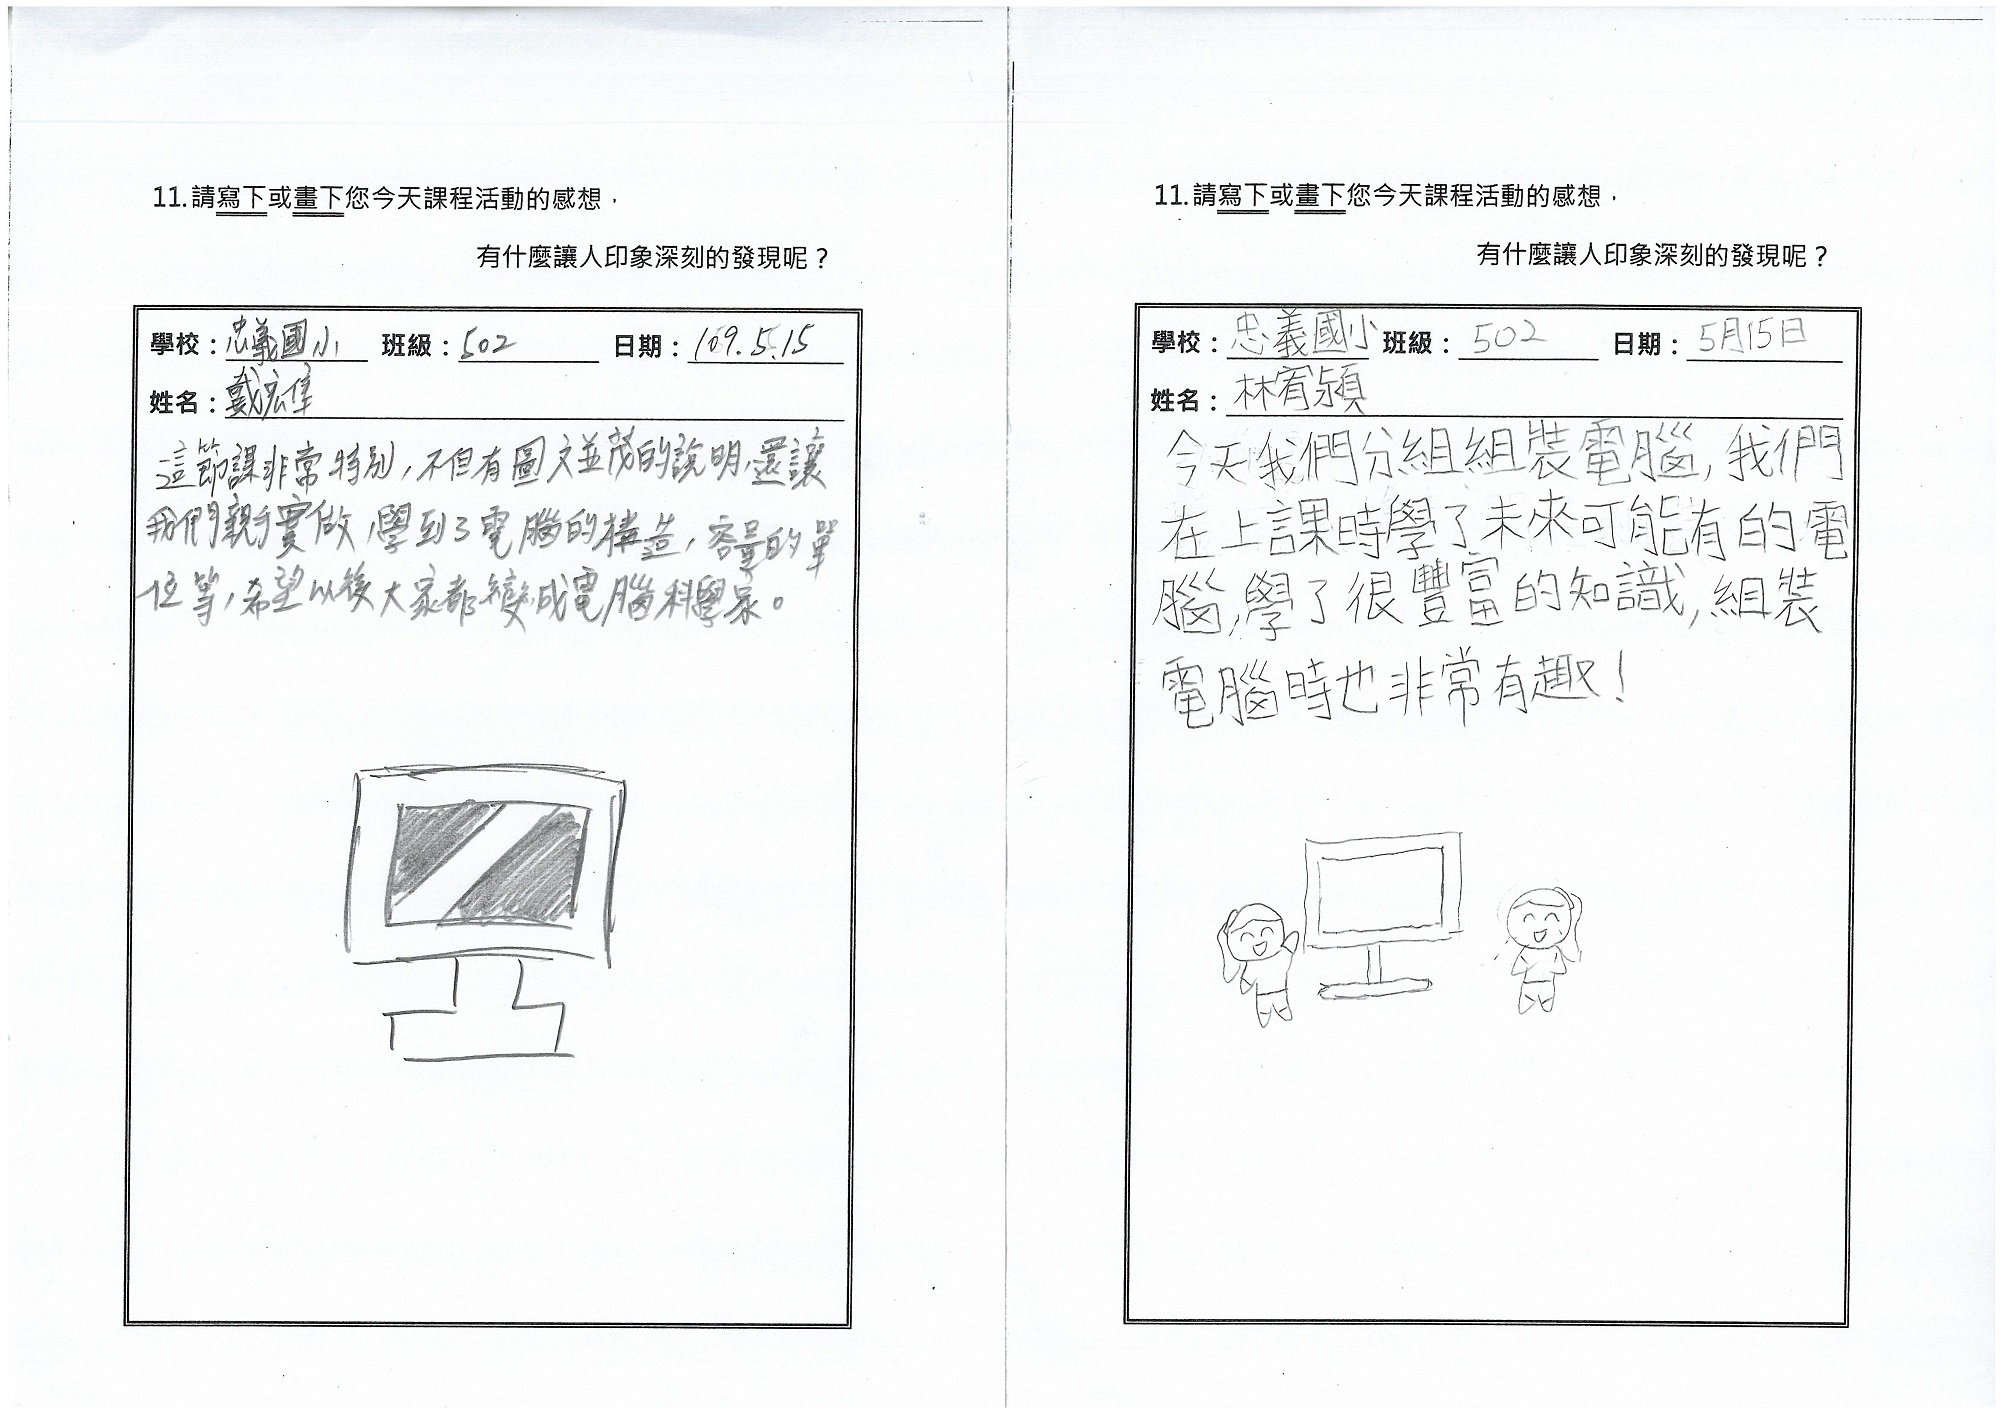 11.請寫下或畫下您今天課程活動的感想，
有什麼讓人印象深刻的發現呢？
學校：忠義國小 班級：502 日期：109.5.15
姓名：戴宏隼
這節課非常特別,不但有圖文並茂的說明,還讓
我們親手實做,學到了電腦的構造,容量的單
位等,希望以後大家都變成電腦科學家。
11.請寫下或畫下您今天課程活動的感想，
有什麼讓人印象深刻的發現呢？
學校：忠義國小 班級：502 日期：5月15日
姓名：林宥潁
今天我們分組組裝電腦,我們
在上課時學了未來可能有的電
腦,學了很豐富的知識,組裝
電腦時也非常有趣!